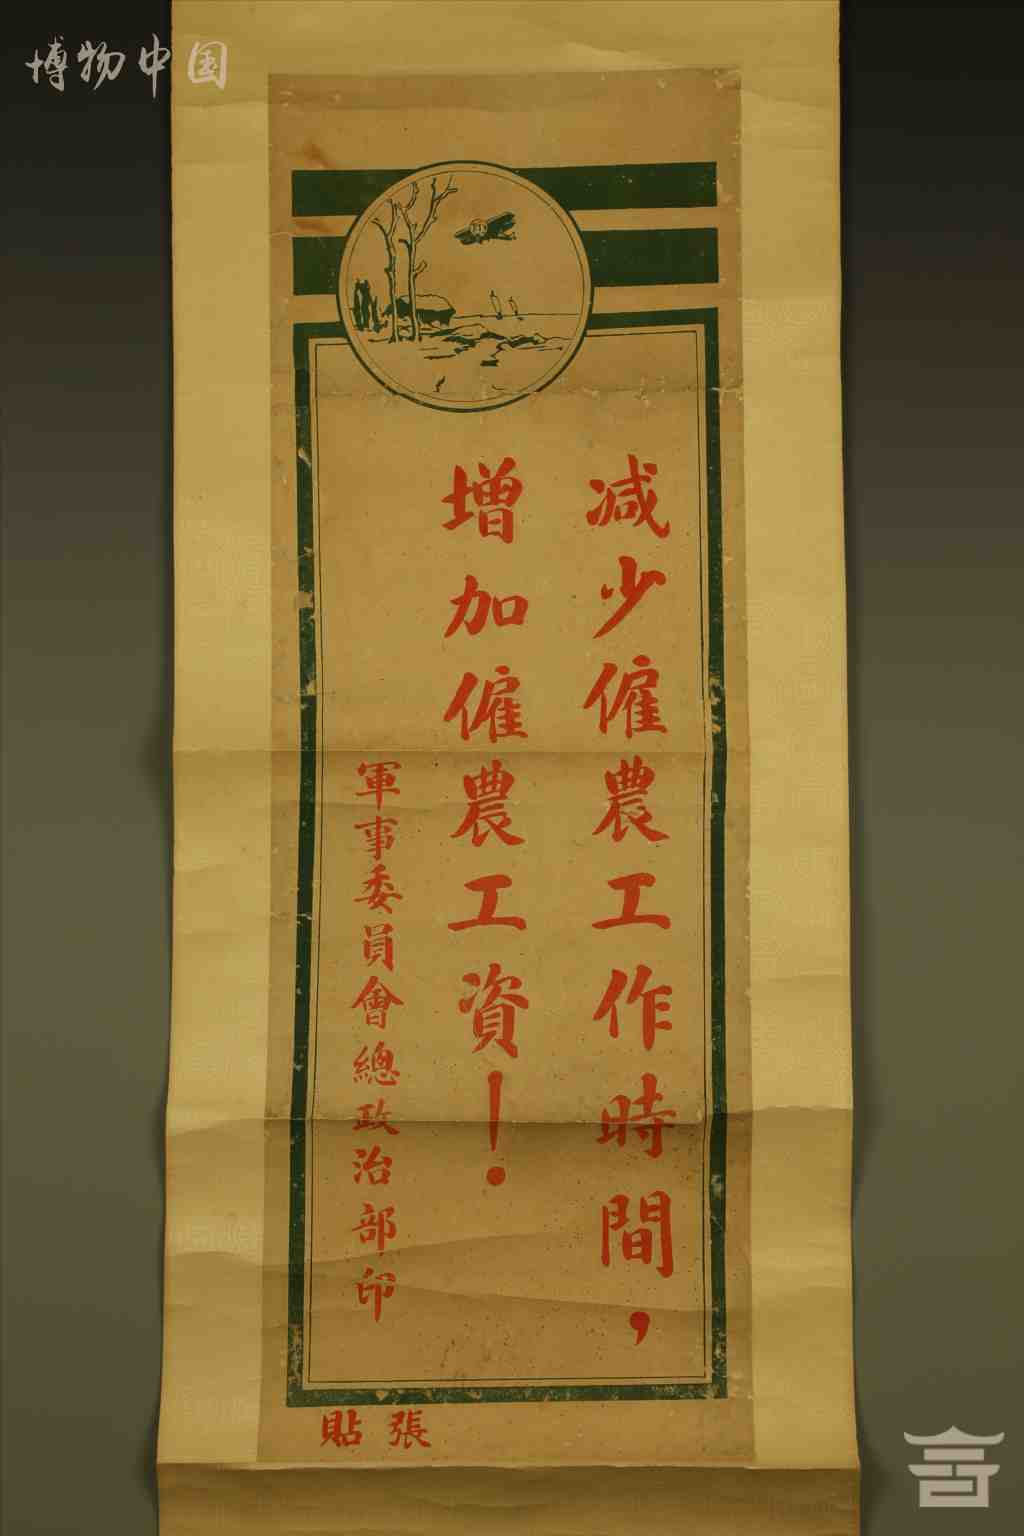 博物中国
减少僱農工作時間，
增加僱農工資！
軍事委員會總政治部印
張貼